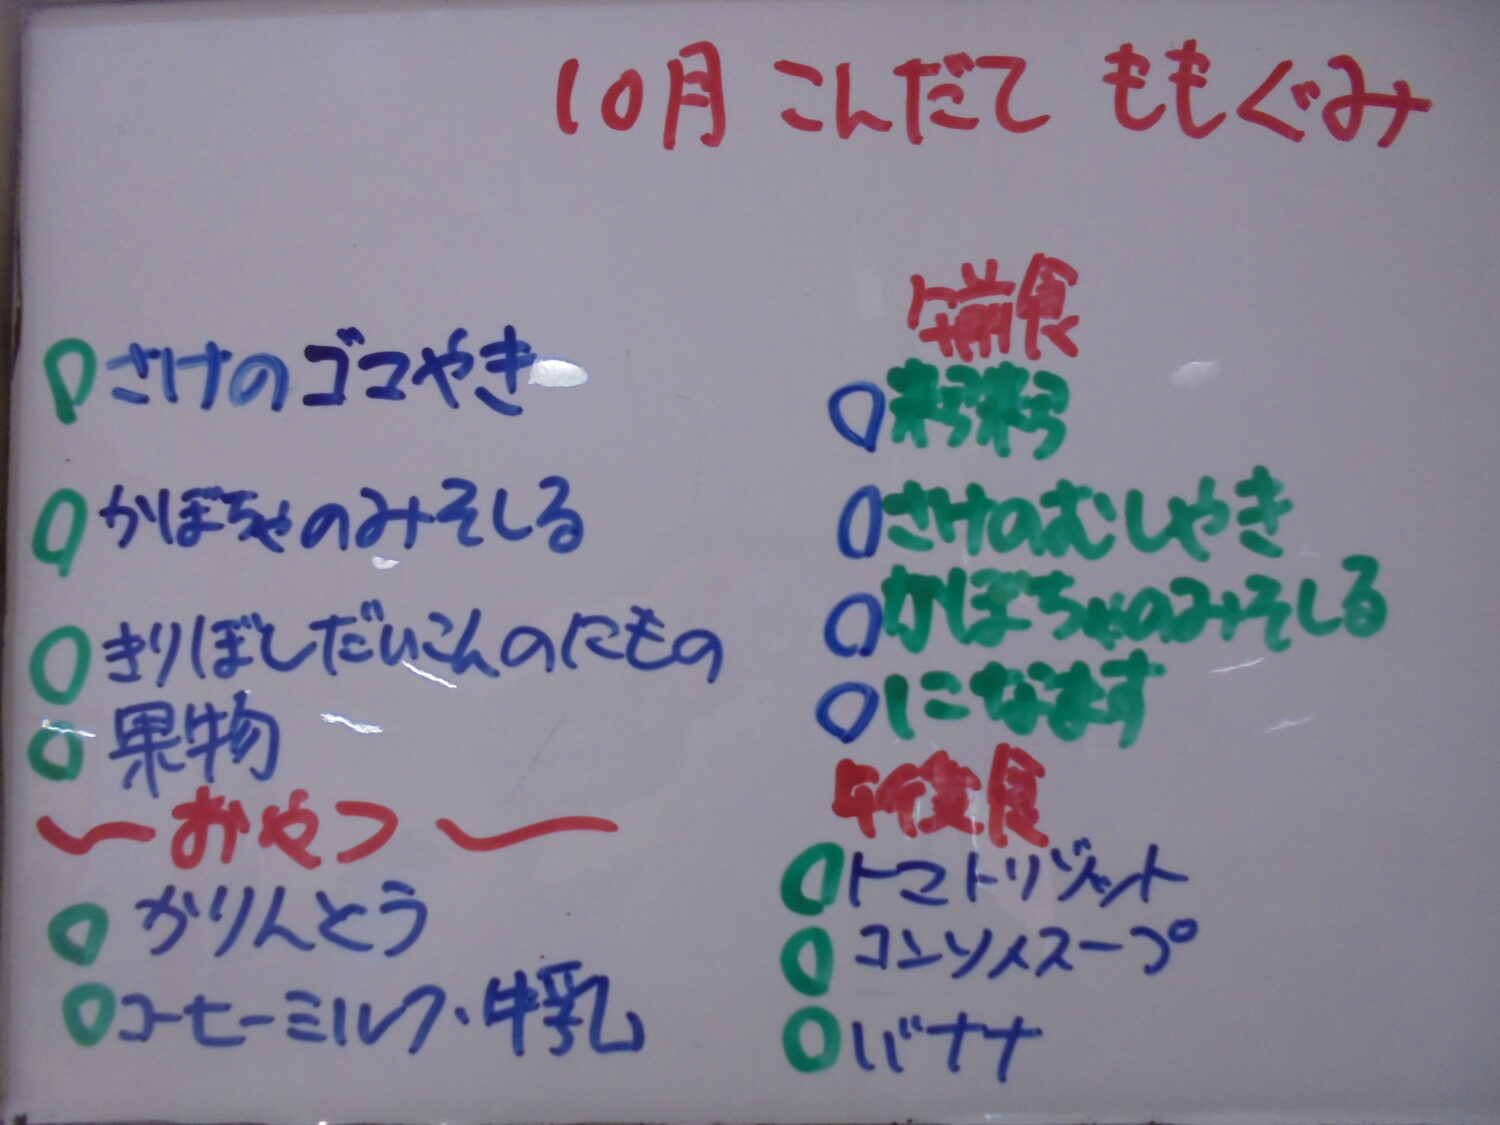 10月 こんだて ももぐみ
さけのゴマやき
かぼちゃのみそしる
きりぼしだいこんのにもの
果物
おやつ
かりんとう
コーヒーミルク・牛乳
午前食
さけのむしやき
かぼちゃのみそしる
になます
午後食
トマトリゾット
コンソメスープ
バナナ